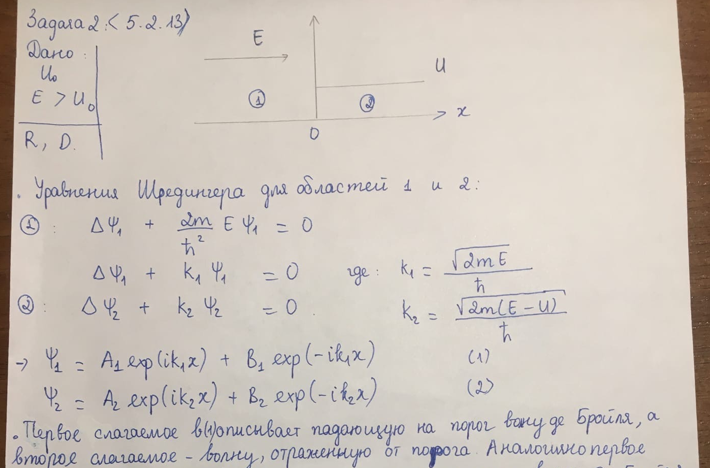 Задача 2: < 5.2.13)
Дано:
U₀
E > U₀
R, D.
E
U
①
②
x
0
. Уравнения Шредингера для областей 1 и 2:
①: ΔΨ₁ + 2m/ħ² E Ψ₁ = 0
ΔΨ₁ + k₁ Ψ₁ = 0 где: k₁ = √2mE / ħ
②: ΔΨ₂ + k₂ Ψ₂ = 0. k₂ = √2m(E – U) / ħ
→ Ψ₁ = A₁ exp(ik₁x) + B₁ exp(-ik₁x) (1)
Ψ₂ = A₂ exp(ik₂x) + B₂ exp(-ik₂x) (2)
. Первое слагаемое в(1)описывает падающую на порог волну де Бройля, а
второе слагаемое – волну, отраженную от порога. Аналогично первое